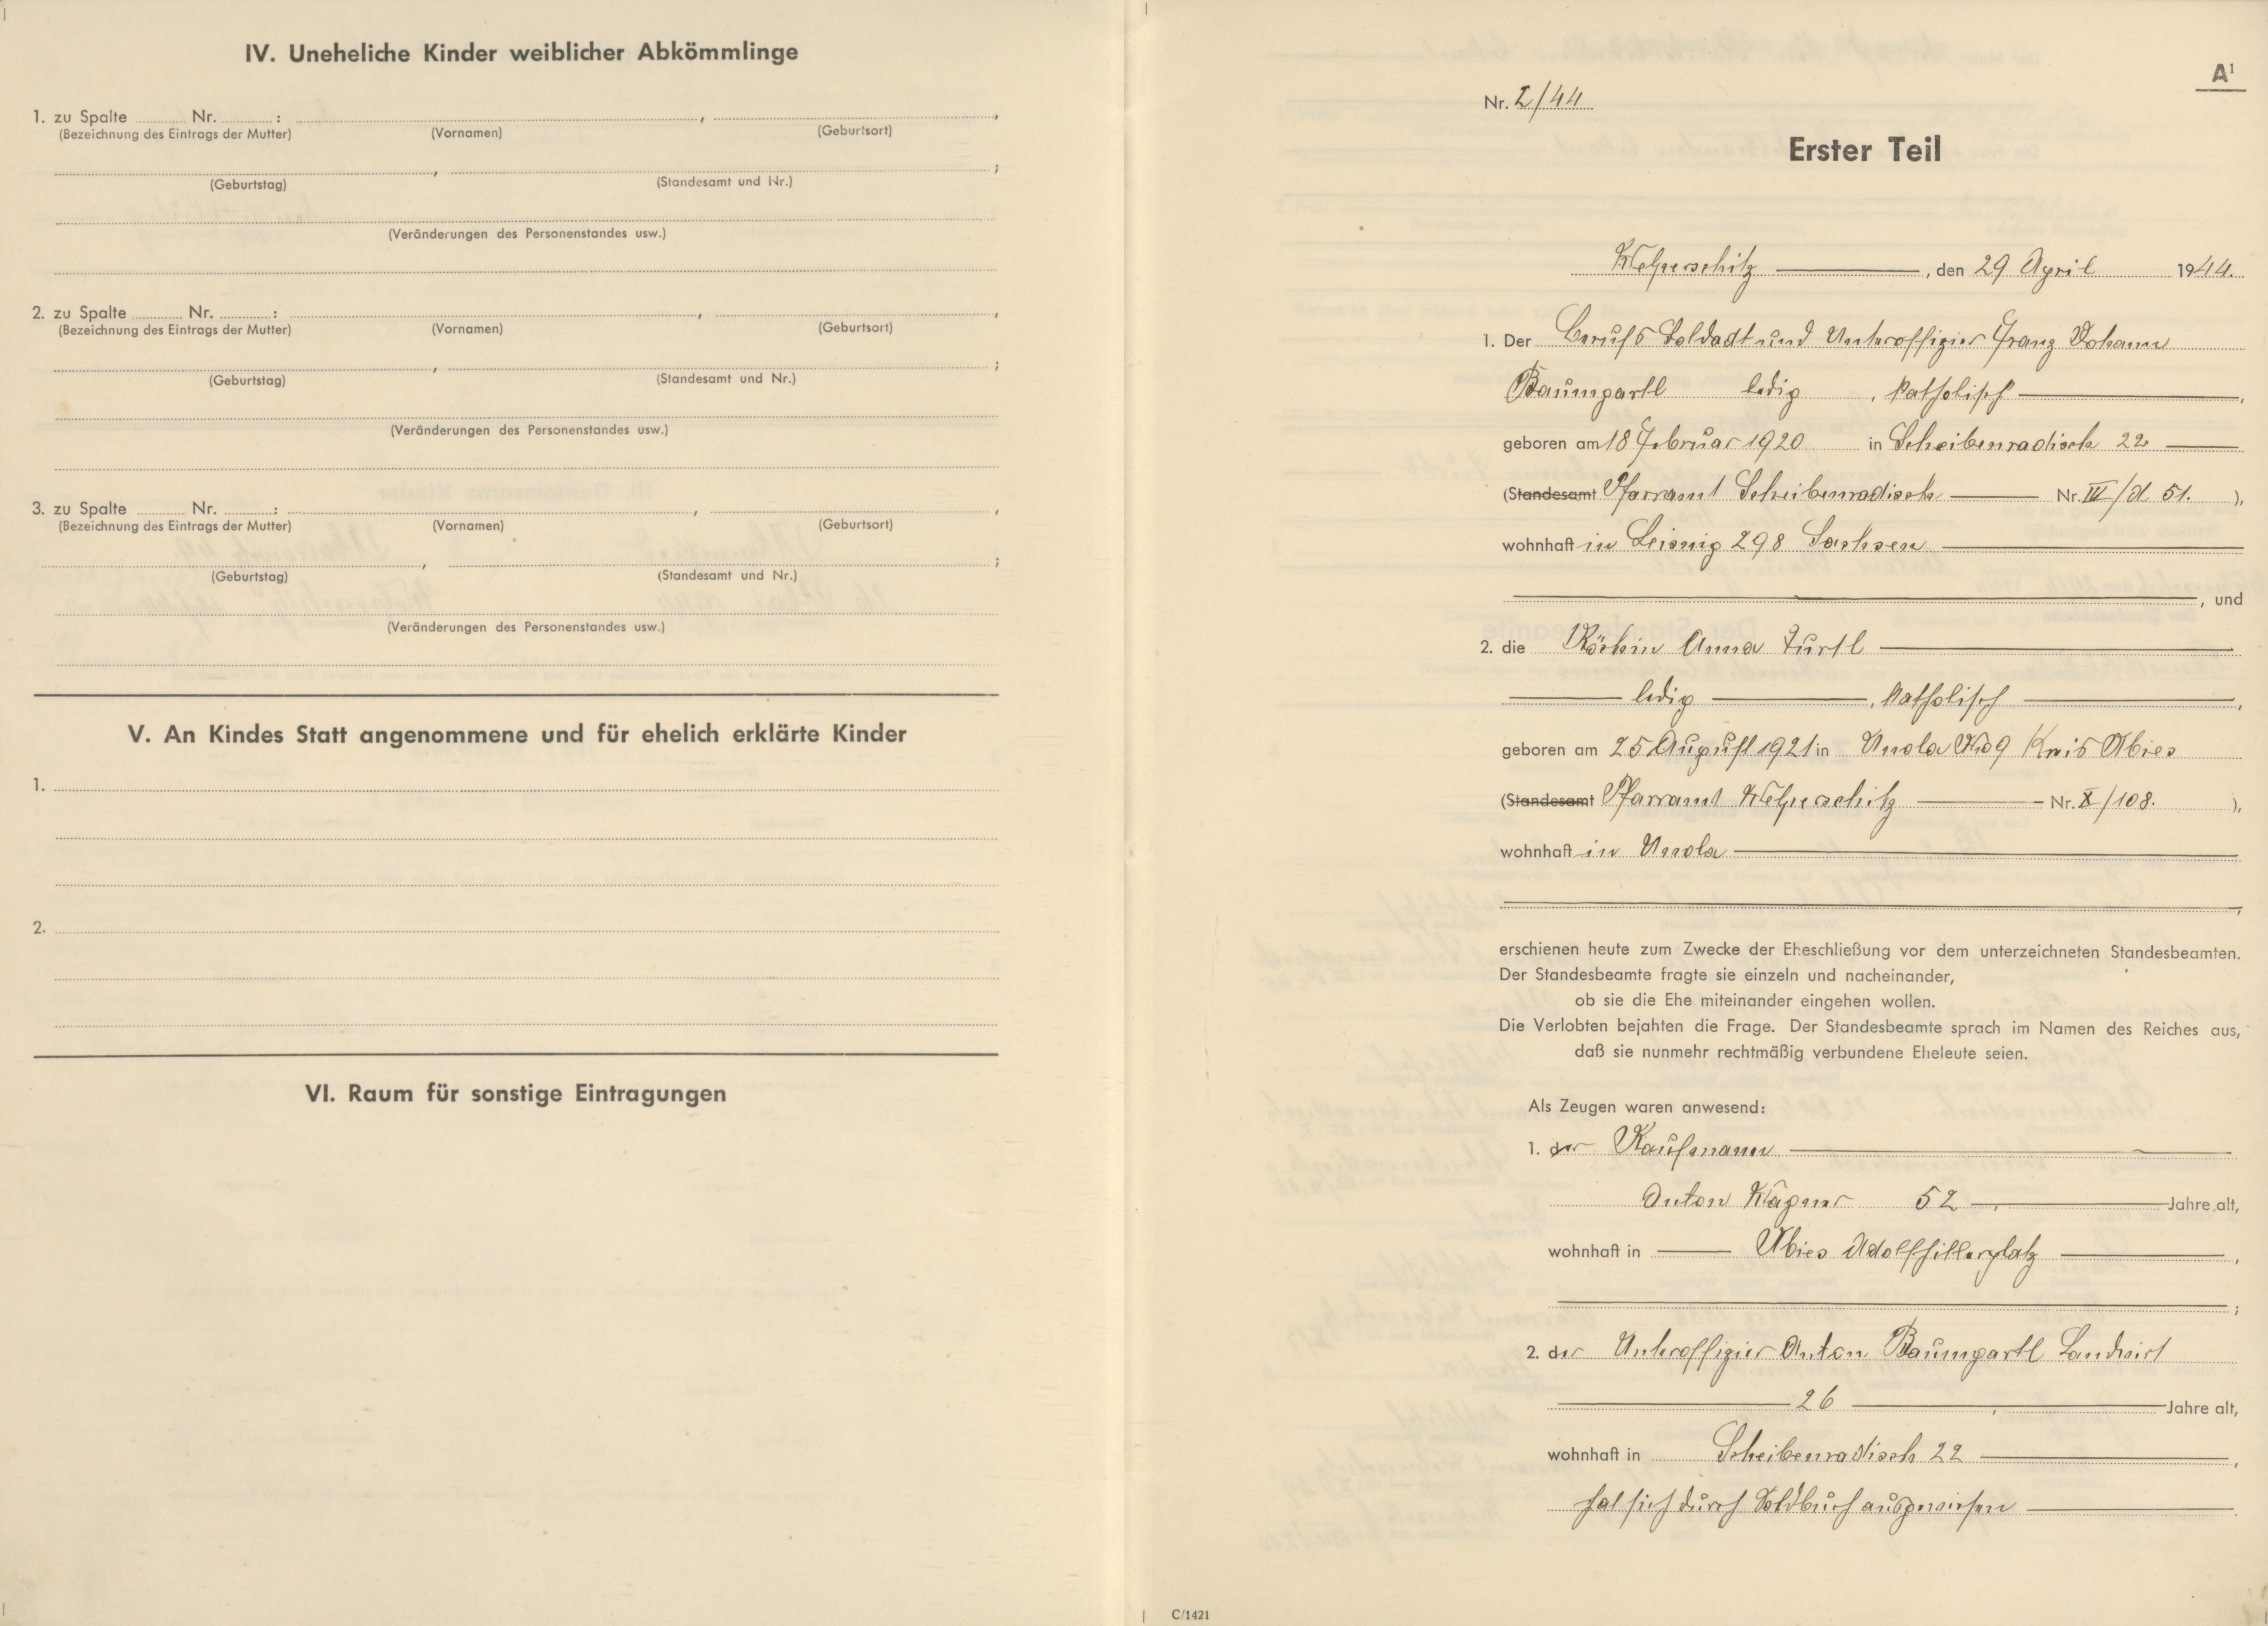 IV. Uneheliche Kinder weiblicher Abkömmlinge
1. zu Spalte Nr. : , ,
(Bezeichnung des Eintrags der Mutter) (Vornamen) (Geburtsort)
, ;
(Geburtstag) (Standesamt und Nr.)
(Veränderungen des Personenstandes usw.)
2. zu Spalte Nr. : , ,
(Bezeichnung des Eintrags der Mutter) (Vornamen) (Geburtsort)
, ;
(Geburtstag) (Standesamt und Nr.)
(Veränderungen des Personenstandes usw.)
3. zu Spalte Nr. : , ,
(Bezeichnung des Eintrags der Mutter) (Vornamen) (Geburtsort)
, ;
(Geburtstag) (Standesamt und Nr.)
(Veränderungen des Personenstandes usw.)
V. An Kindes Statt angenommene und für ehelich erklärte Kinder
1.
2.
VI. Raum für sonstige Eintragungen
A¹
Nr. 2/44
Erster Teil
Welperschitz, den 29 April 1944.
1. Der Berufs Soldadt und Unteroffizier Franz Johann
Baumgartl ledig, katholisch,
geboren am 18 Februar 1920 in Scheibenradisch 22
(Standesamt Pfarramt Scheibenradisch Nr. III/d 51. ),
wohnhaft in Leisnig 298 Sachsen
, und
2. die Köchin Anna Turtl
ledig, katholisch,
geboren am 25 August 1921 in Unola No 9 Kreis Mies
(Standesamt Pfarramt Welperschitz Nr. X/108. ),
wohnhaft in Unola
,
erschienen heute zum Zwecke der Eheschließung vor dem unterzeichneten Standesbeamten.
Der Standesbeamte fragte sie einzeln und nacheinander,
ob sie die Ehe miteinander eingehen wollen.
Die Verlobten bejahten die Frage. Der Standesbeamte sprach im Namen des Reiches aus,
daß sie nunmehr rechtmäßig verbundene Eheleute seien.
Als Zeugen waren anwesend:
1. der Kaufmann
Anton Wagner 52, Jahre alt,
wohnhaft in Mies Adolfhitlerplatz,
;
2. der Unteroffizier Anton Baumgartl Landwirt
26, Jahre alt,
wohnhaft in Scheibenradisch 22,
hat sich durch Soldbuch ausgewiesen
C/1421